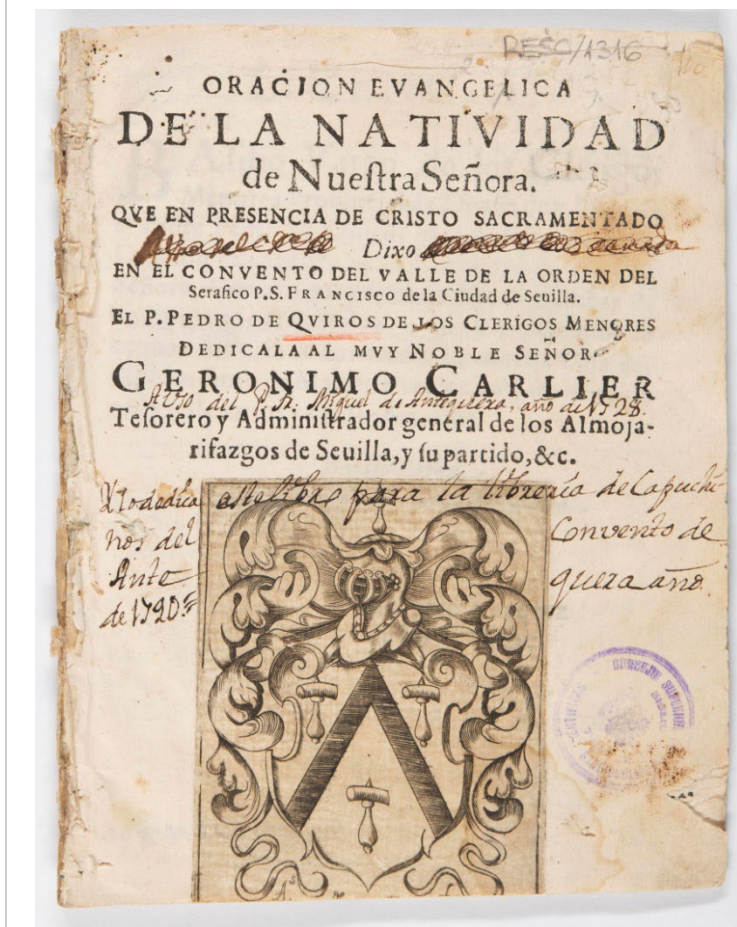 RESC/1316
ORACION EVANGELICA
DE LA NATIVIDAD
de Nueſtra Señora.
QVE EN PRESENCIA DE CRISTO SACRAMENTADO
Dixo
EN EL CONVENTO DEL VALLE DE LA ORDEN DEL
Serafico P.S. FRANCISCO de la Ciudad de Seuilla.
EL P. PEDRO DE QVIROS DE LOS CLERIGOS MENORES
DEDICALA AL MVY NOBLE SEÑOR
GERONIMO CARLIER
del P. Fr. Miguel de Antequera, año de 1728.
Teſorero y Adminiſtrador general de los Almoja-
rifazgos de Seuilla, y ſu partido, &c.
eſte libro para la librería de Capuchi
nos del Convento de
Ante quera año
CONSEJO SUPERIOR